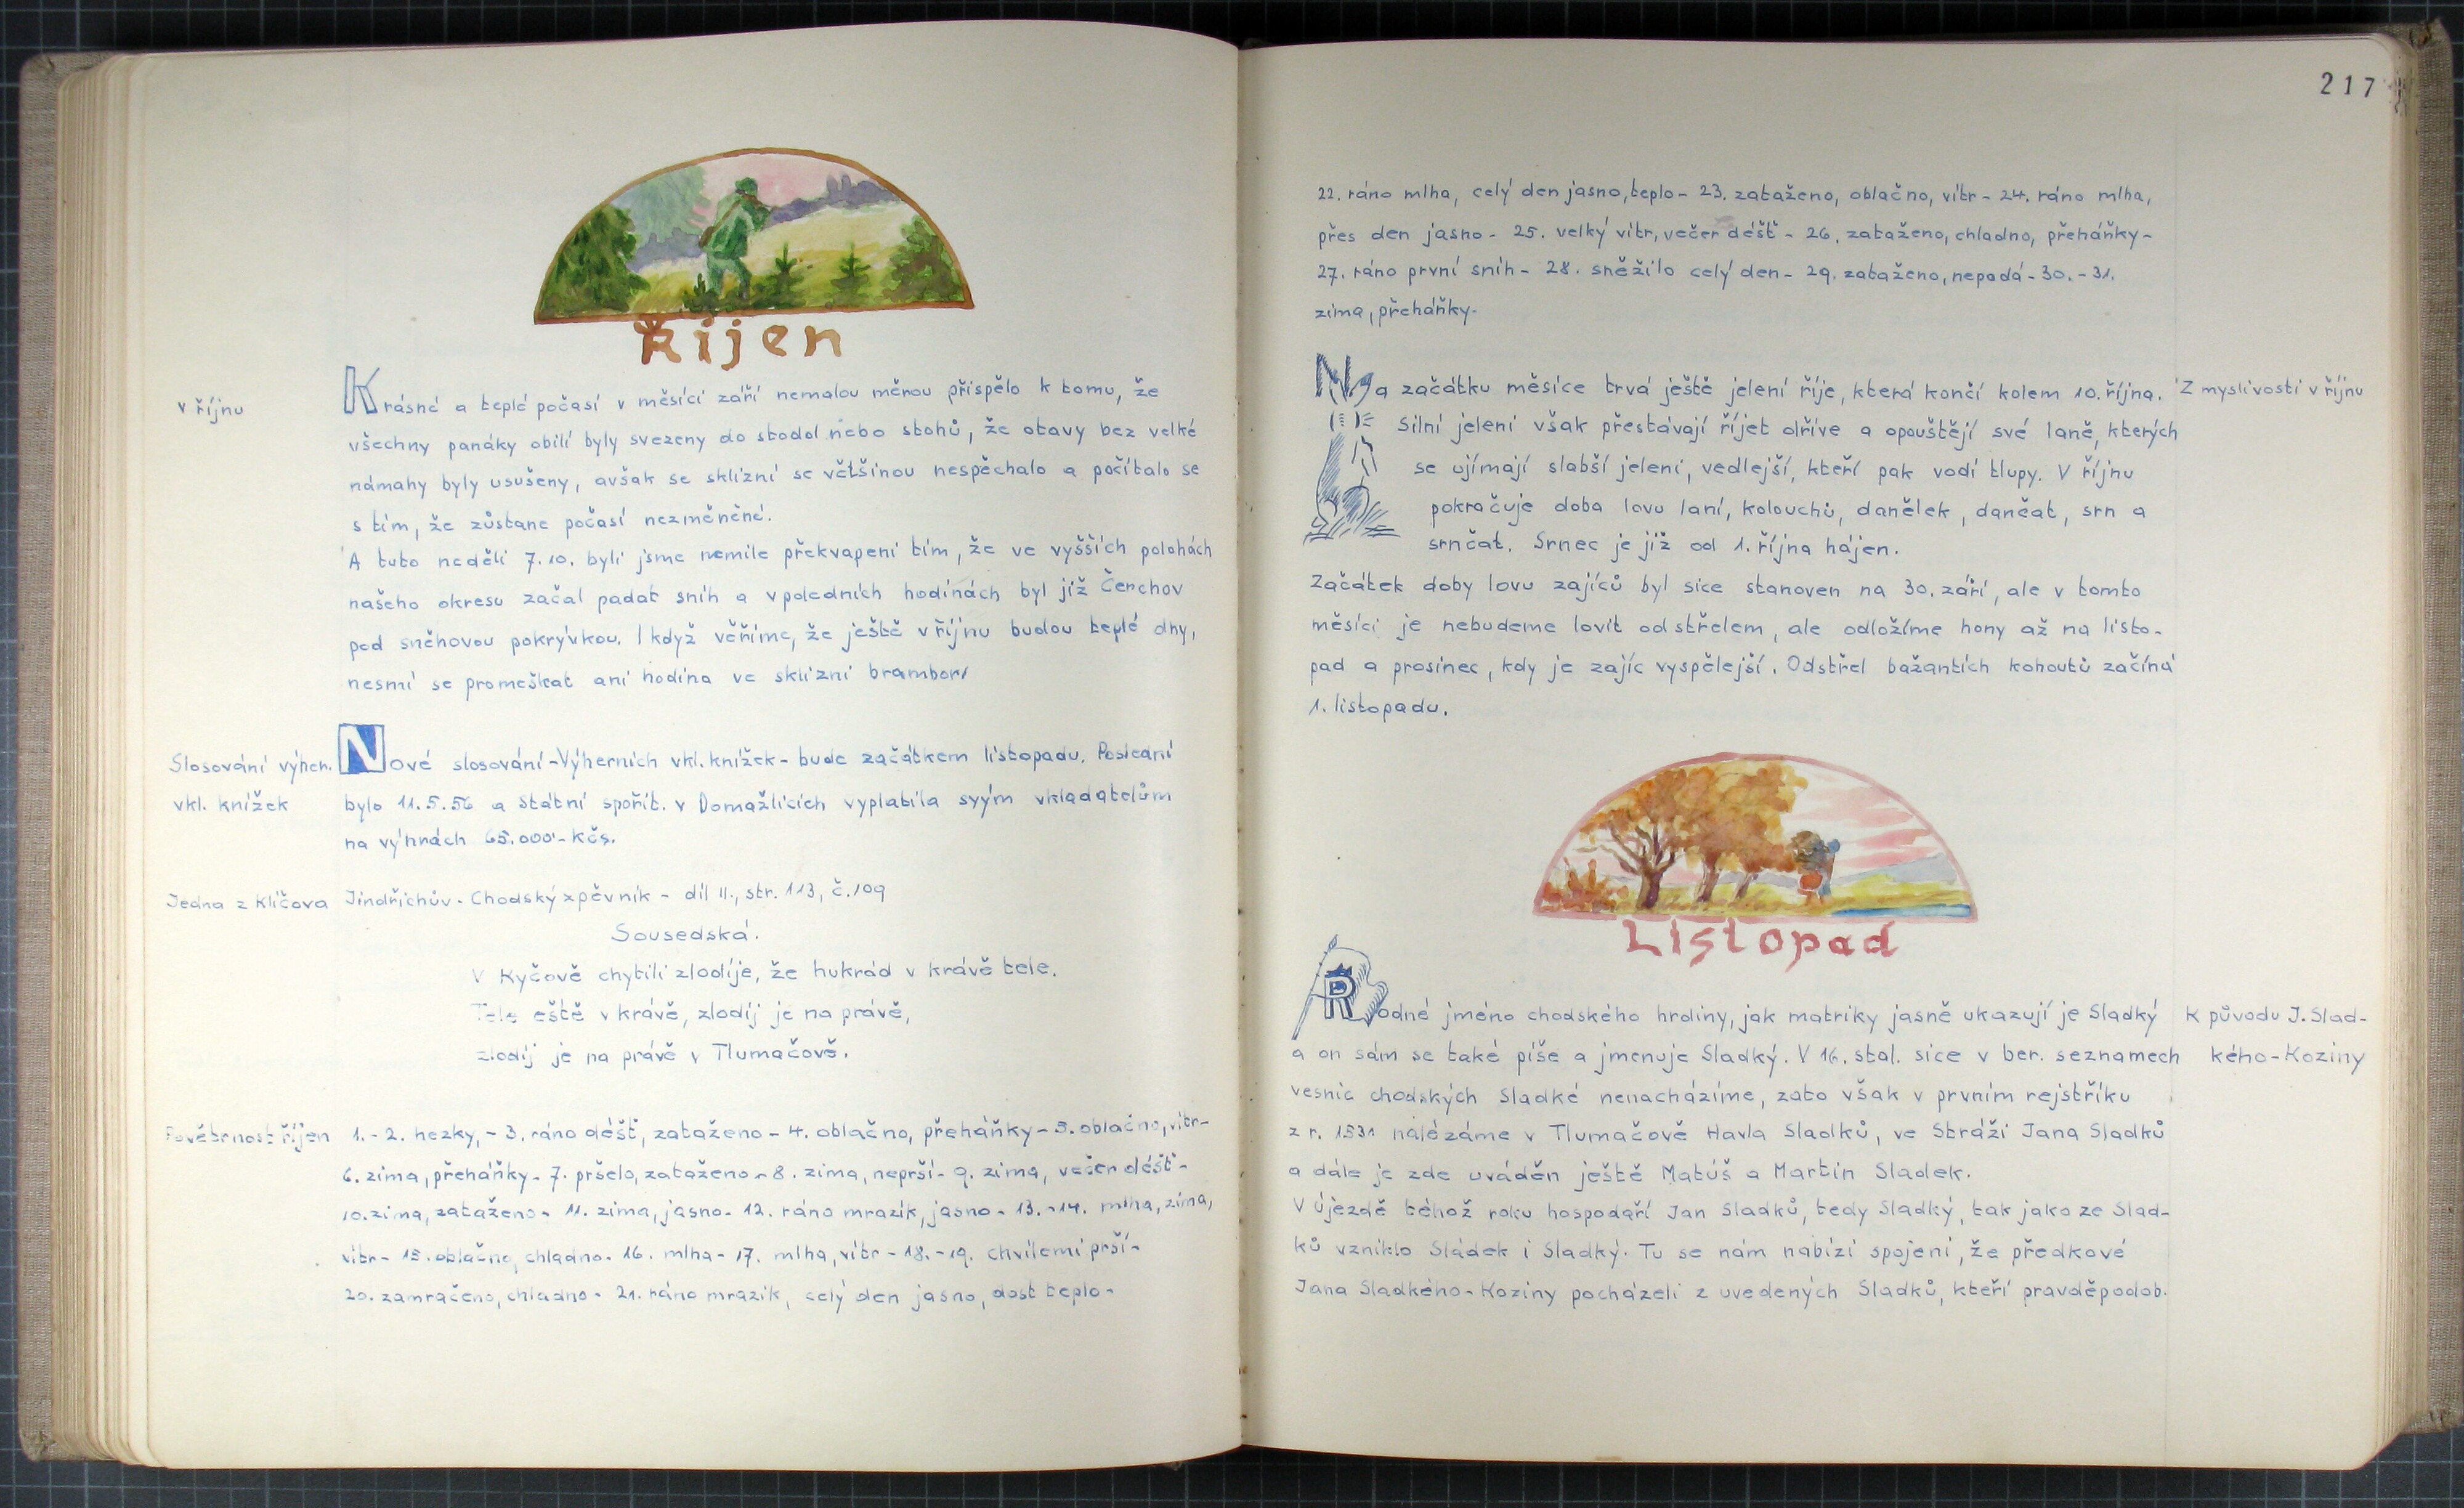 Říjen
v říjnu
Krásné a teplé počasí v měsíci září nemalou měrou přispělo k tomu, že
všechny panáky obilí byly svezeny do stodol nebo stohů, že otavy bez velké
námahy byly usušeny, avšak se sklizní se většinou nespěchalo a počítalo se
s tím, že zůstane počasí nezměněné.
A tuto neděli 7.10. byli jsme nemile překvapeni tím, že ve vyšších polohách
našeho okresu začal padat sníh a v poledních hodinách byl již Čerchov
pod sněhovou pokrývkou. I když věříme, že ještě v říjnu budou teplé dny,
nesmí se promeškat ani hodina ve sklizni brambor!
Slosování výher.
vkl. knížek
Nové slosování - Výherních vkl. knížek - bude začátkem listopadu. Poslední
bylo 11.5.56 a Státní spořit. v Domažlicích vyplatila svým vkladatelům
na výhrách 65.000'- Kčs.
Jedna z Klíčova
Jindřichův - Chodský zpěvník - díl II., str. 113, č. 109
Sousedská.
V Kyčově chytili zlodíje, že hukrád v krávě tele.
Tele eště v krávě, zlodíj je na právě,
zlodíj je na právě v Tlumačově.
Povětrnost říjen
1.- 2. hezky, - 3. ráno déšť, zataženo - 4. oblačno, přeháňky - 5. oblačno, vítr -
6. zima, přeháňky - 7. pršelo, zataženo - 8. zima, neprší - 9. zima, večer déšť -
10. zima, zataženo - 11. zima, jasno - 12. ráno mrazík, jasno - 13. - 14. mlha, zima,
vítr - 15. oblačno, chladno - 16. mlha - 17. mlha, vítr - 18. - 19. chvílemi prší -
20. zamračeno, chladno - 21. ráno mrazík, celý den jasno, dost teplo -
217
22. ráno mlha, celý den jasno, teplo - 23. zataženo, oblačno, vítr - 24. ráno mlha,
přes den jasno - 25. velký vítr, večer déšť - 26. zataženo, chladno, přeháňky -
27. ráno první sníh - 28. sněžilo celý den - 29. zataženo, nepadá - 30. - 31.
zima, přeháňky -
Na začátku měsíce trvá ještě jelení říje, která končí kolem 10. října.
Z myslivosti v říjnu
Silní jeleni však přestávají říjet dříve a opouštějí své laně, kterých
se ujímají slabší jeleni, vedlejší, kteří pak vodí tlupy. V říjnu
pokračuje doba lovu laní, kolouchů, danělek, dančat, srn a
srnčat. Srnec je již od 1. října hájen.
Začátek doby lovu zajíců byl sice stanoven na 30. září, ale v tomto
měsíci je nebudeme lovit odstřelem, ale odložíme hony až na listo-
pad a prosinec, kdy je zajíc vyspělejší. Odstřel bažantích kohoutů začíná
1. listopadu.
Listopad
Rodné jméno chodského hrdiny, jak matriky jasně ukazují je Sladký
K původu J. Slad-
kého - Koziny
a on sám se také píše a jmenuje Sladký. V 16. stol. sice v ber. seznamech
vesnic chodských Sladké nenacházíme, zato však v prvním rejstříku
z r. 1531 nalézáme v Tlumačově Havla Sladků, ve Stráži Jana Sladků
a dále je zde uváděn ještě Matúš a Martin Sladek.
V Újezdě téhož roku hospodaří Jan Sladků, tedy Sladký, tak jako ze Slad-
ků vzniklo Sládek i Sladký. Tu se nám nabízí spojení, že předkové
Jana Sladkého - Koziny pocházeli z uvedených Sladků, kteří pravděpodob.